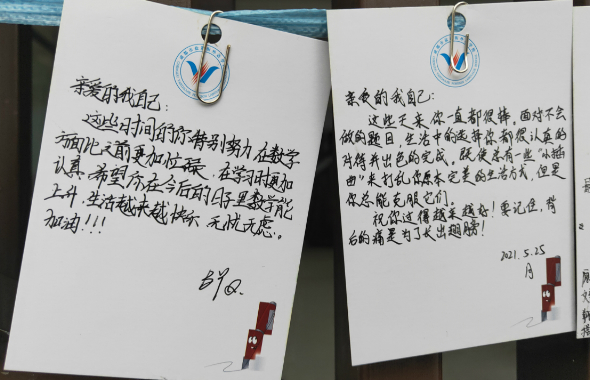 亲爱的我自己:
这些日时间的你特别努力在数学
方面比之前更加忙碌。在学习时更加
认真。希望你在今后的日子里数学能
上升。生活越来越快乐 无忧无虑。
加油!!!
亲爱的我自己:
这些天来你一直都很棒。面对不会
做的题目,生活中的选择你都很认真的
对待并出色的完成。既使总有一些“小插
曲”来打乱你原本完美的生活方式,但是
你总能克服它们。
祝你过得越来越好!要记住,背
后的痛是为了长出翅膀!
2021.5.25
月